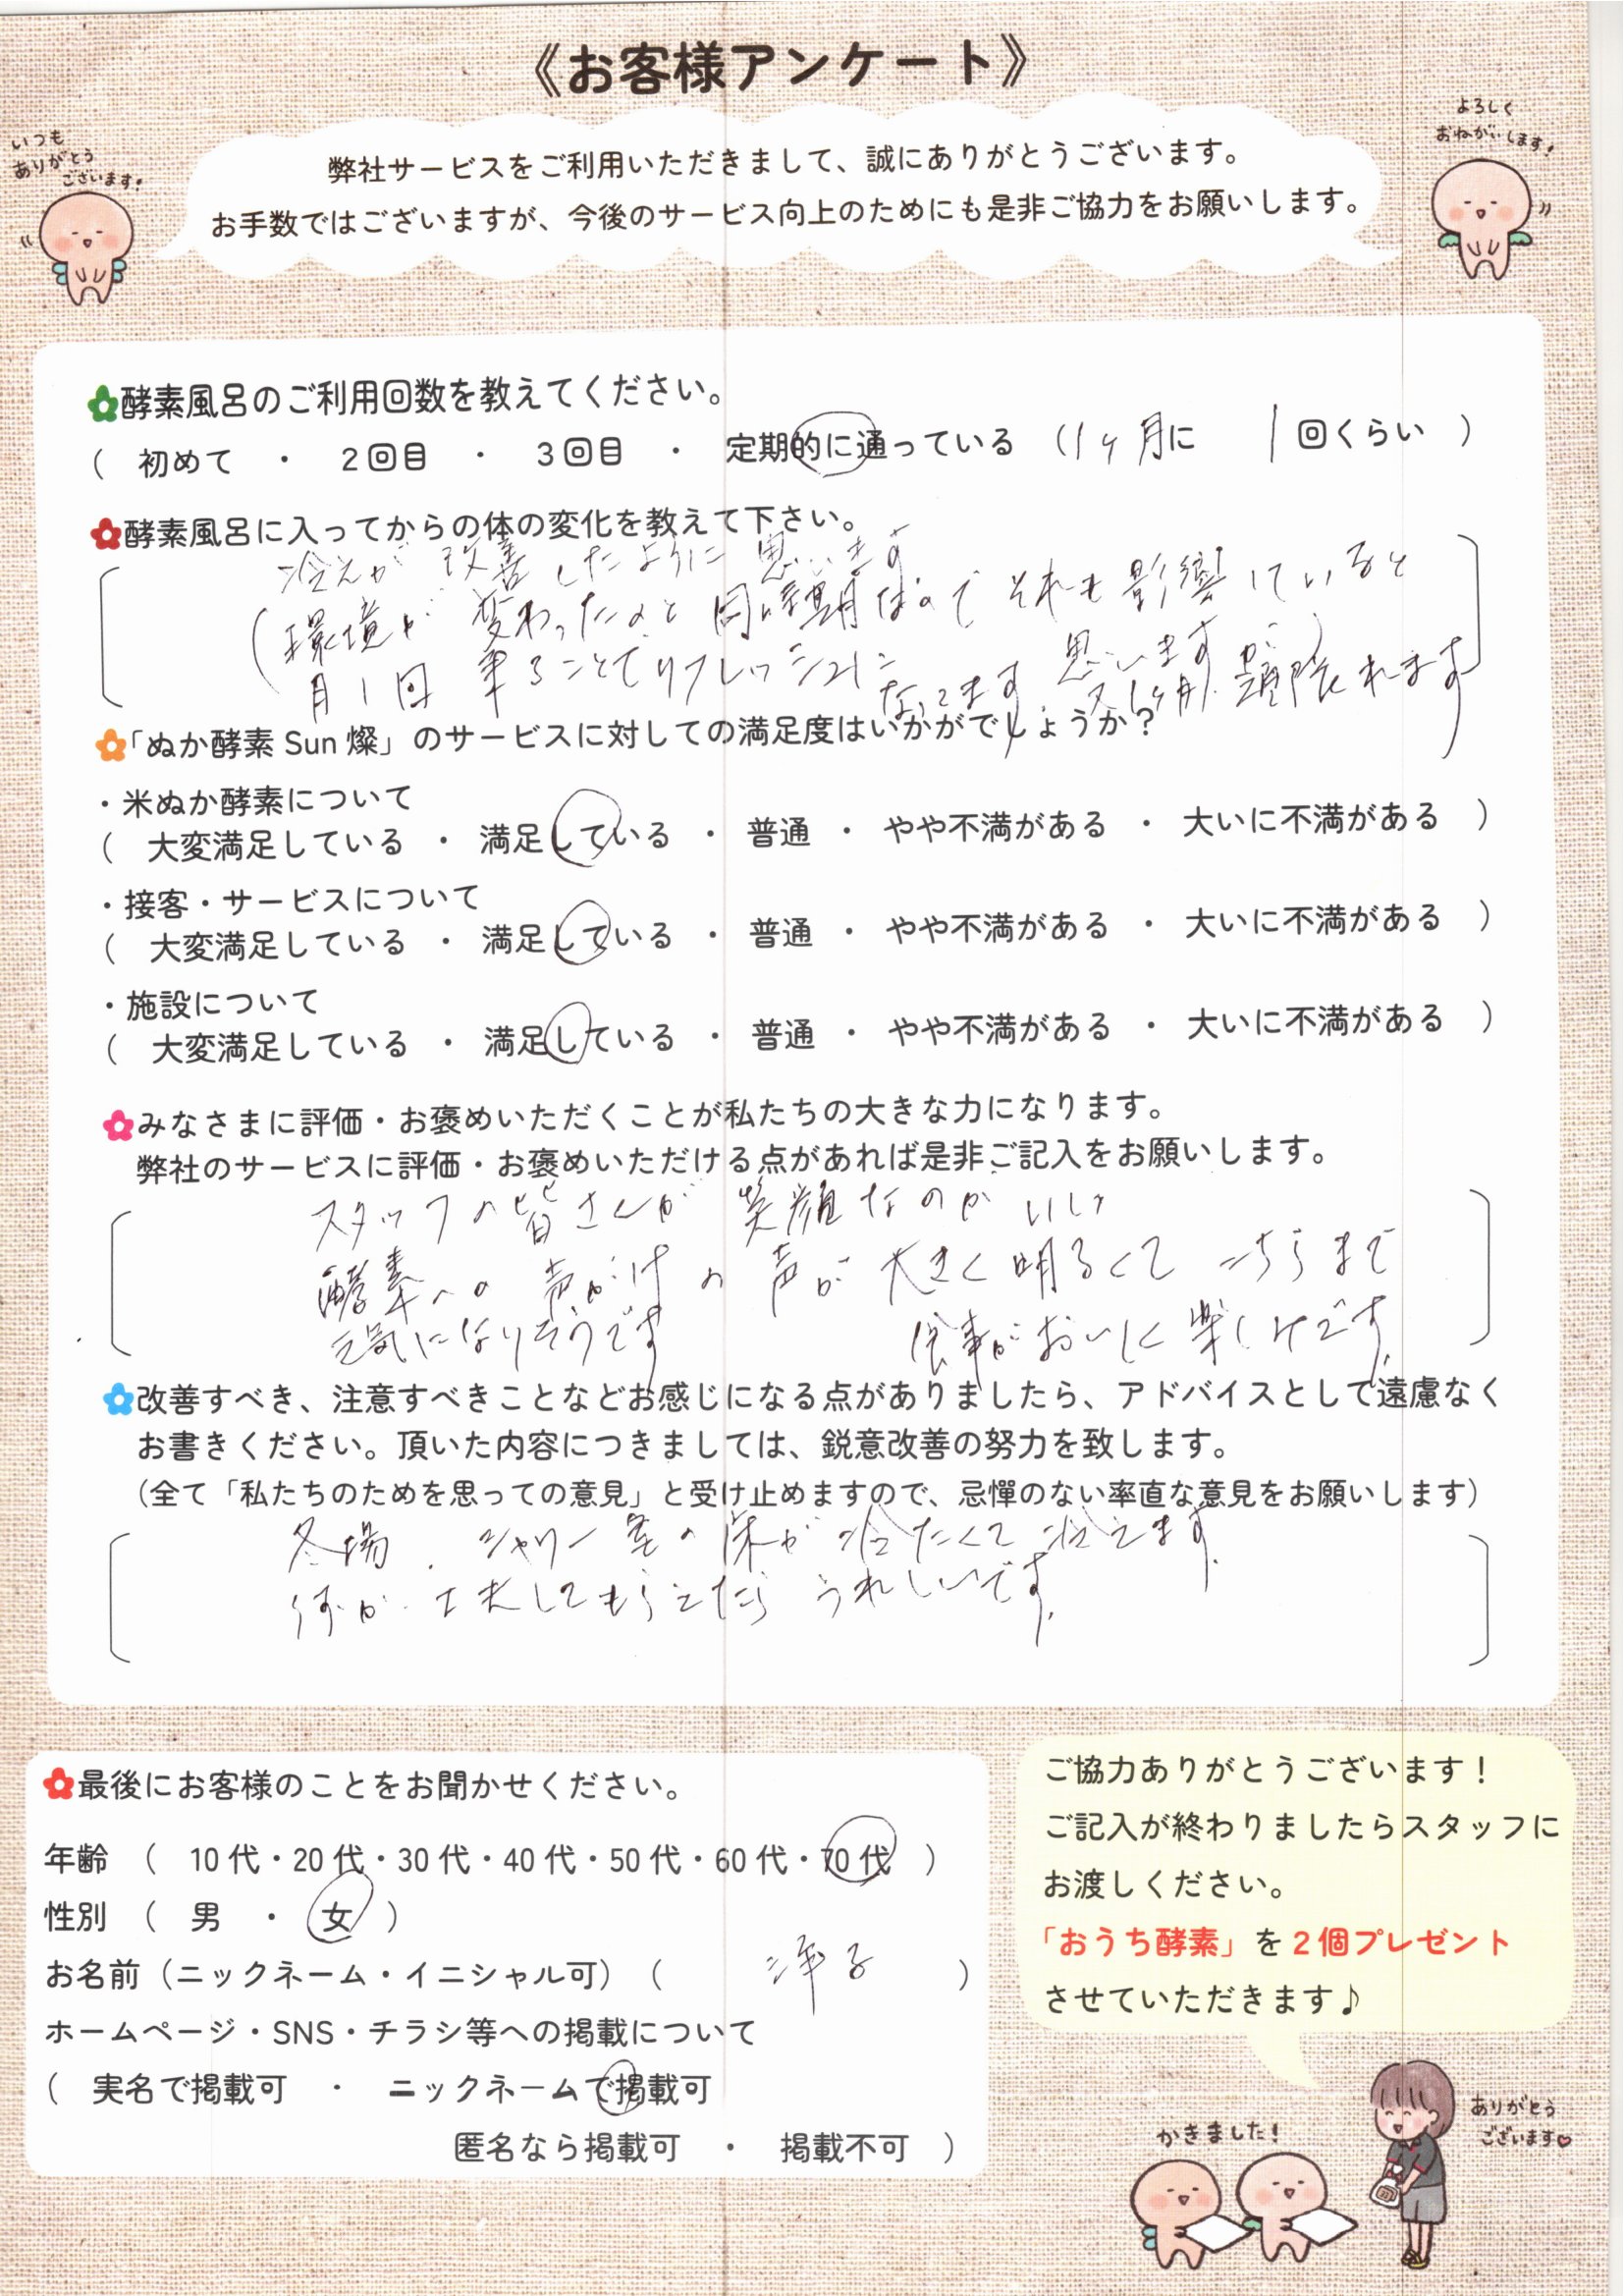 《お客様アンケート》
いつも
ありがとう
ございます!
よろしく
おねがいします!
弊社サービスをご利用いただきまして、誠にありがとうございます。
お手数ではございますが、今後のサービス向上のためにも是非ご協力をお願いします。
酵素風呂のご利用回数を教えてください。
( 初めて ・ 2回目 ・ 3回目 ・ 定期的に通っている (1ヶ月に 1回くらい )
酵素風呂に入ってからの体の変化を教えて下さい。
冷えが改善したように思います
(環境が変わったのと同時期なのでそれも影響していると
思いますが)
月1回来ることでリフレッシュに
なってます。又1ヶ月頑張れます
「ぬか酵素 Sun 燦」のサービスに対しての満足度はいかがでしょうか?
・米ぬか酵素について
( 大変満足している ・ 満足している ・ 普通 ・ やや不満がある ・ 大いに不満がある )
・接客・サービスについて
( 大変満足している ・ 満足している ・ 普通 ・ やや不満がある ・ 大いに不満がある )
・施設について
( 大変満足している ・ 満足している ・ 普通 ・ やや不満がある ・ 大いに不満がある )
みなさまに評価・お褒めいただくことが私たちの大きな力になります。
弊社のサービスに評価・お褒めいただける点があれば是非ご記入をお願いします。
スタッフの皆さんが笑顔なのがいい
酵素への声がけの声が大きく明るくてこちらまで
元気になりそうです 食事がおいしく楽しみです。
改善すべき、注意すべきことなどお感じになる点がありましたら、アドバイスとして遠慮なく
お書きください。頂いた内容につきましては、鋭意改善の努力を致します。
(全て「私たちのためを思っての意見」と受け止めますので、忌憚のない率直な意見をお願いします)
冬場、シャワー室の床が冷たくて冷えます。
何か工夫してもらえたらうれしいです。
最後にお客様のことをお聞かせください。
年齢 ( 10代・20代・30代・40代・50代・60代・70代 )
性別 ( 男 ・ 女 )
お名前(ニックネーム・イニシャル可) ( 洋子 )
ホームページ・SNS・チラシ等への掲載について
( 実名で掲載可 ・ ニックネームで掲載可
匿名なら掲載可 ・ 掲載不可 )
ご協力ありがとうございます!
ご記入が終わりましたらスタッフに
お渡しください。
「おうち酵素」を2個プレゼント
させていただきます♪
かきました!
ありがとう
ございます♥